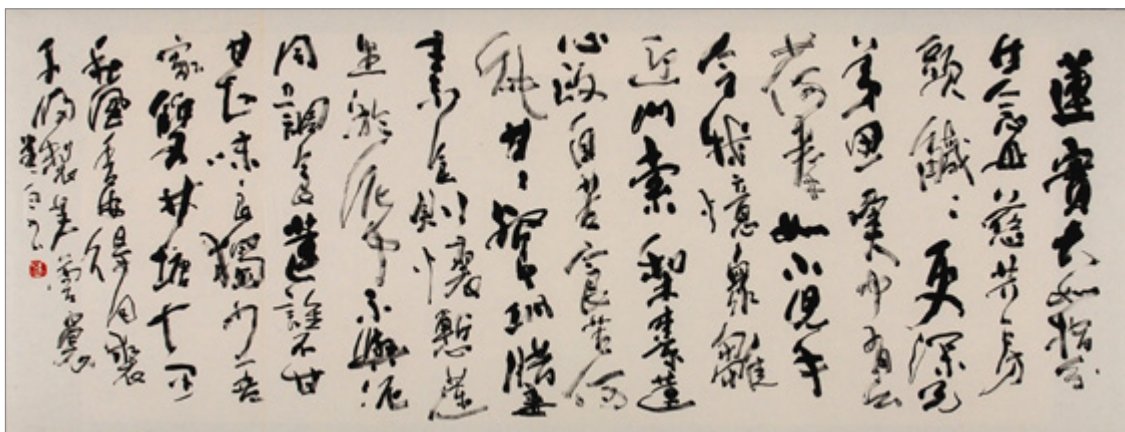 蓮實大如指分
甘念母慈共房
頭 更深兄
弟思實中有幺
荷拳如小兒手
令我憶衆雛
迎門索梨棗蓮
心政自苦食苦何
能甘〻餐 腊毒
素食則懷慙蓮
生於泥中不與泥
同調食蓮誰不甘
甘知味良獨少吾
家雙井塘十里
秋風香安得同袍
子歸製芙蓉裳